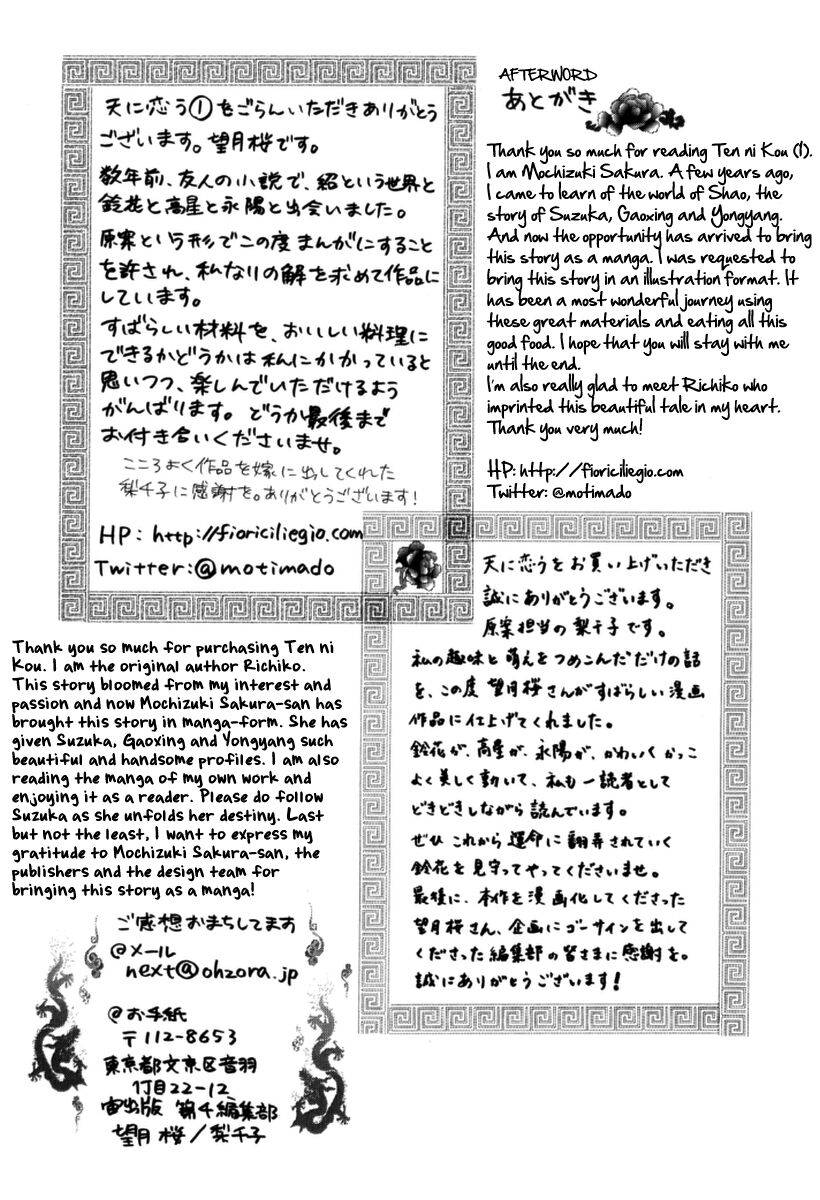 AFTERWORD
あとがき
天に恋う①をごらんいただきありがとう
ございます。望月桜です。
数年前、友人の小説で、紹という世界と
鈴花と高星と永陽と出会いました。
原案という形でこの度まんがにすること
を許され、私なりの解を求めて作品に
しています。
すばらしい材料を、おいしい料理に
できるかどうかは私にかかっていると
思いつつ、楽しんでいただけるよう
がんばります。どうか最後まで
お付き合いくださいませ。
こころよく作品を嫁に出してくれた
梨千子に感謝を。ありがとうございます!
HP: http://fioriciliegio.com
Twitter:@motimado
Thank you so much for reading Ten ni Kou (1).
I am Mochizuki Sakura. A few years ago,
I came to learn of the world of Shao, the
story of Suzuka, Gaoxing and Yongyang.
And now the opportunity has arrived to bring
this story as a manga. I was requested to
bring this story in an illustration format. It
has been a most wonderful journey using
these great materials and eating all this
good food. I hope that you will stay with me
until the end.
I'm also really glad to meet Richiko who
imprinted this beautiful tale in my heart.
Thank you very much!
HP: http://fioriciliegio.com
Twitter: @motimado
天に恋うをお買い上げいただき
誠にありがとうございます。
原案担当の梨千子です。
私の趣味と萌えをつめこんだだけの話
を、この度望月桜さんがすばらしい漫画
作品に仕上げてくれました。
鈴花が、高星が、永陽が、かわいくかっこ
よく美しく動いて、私も一読者として
どきどきしながら読んでいます。
ぜひこれから運命に翻弄されていく
鈴花を見守ってやってくださいませ。
最後に、本作を漫画化してくださった
望月桜さん、企画にゴーサインを出して
くださった編集部の皆さまに感謝を。
誠にありがとうございます!
Thank you so much for purchasing Ten ni
Kou. I am the original author Richiko.
This story bloomed from my interest and
passion and now Mochizuki Sakura-san has
brought this story in manga-form. She has
given Suzuka, Gaoxing and Yongyang such
beautiful and handsome profiles. I am also
reading the manga of my own work and
enjoying it as a reader. Please do follow
Suzuka as she unfolds her destiny. Last
but not the least, I want to express my
gratitude to Mochizuki Sakura-san, the
publishers and the design team for
bringing this story as a manga!
ご感想おまちしてます
@メール
next@ohzora.jp
@お手紙
〒112-8653
東京都文京区音羽
1丁目22-12
宙出版 第4編集部
望月桜/梨千子